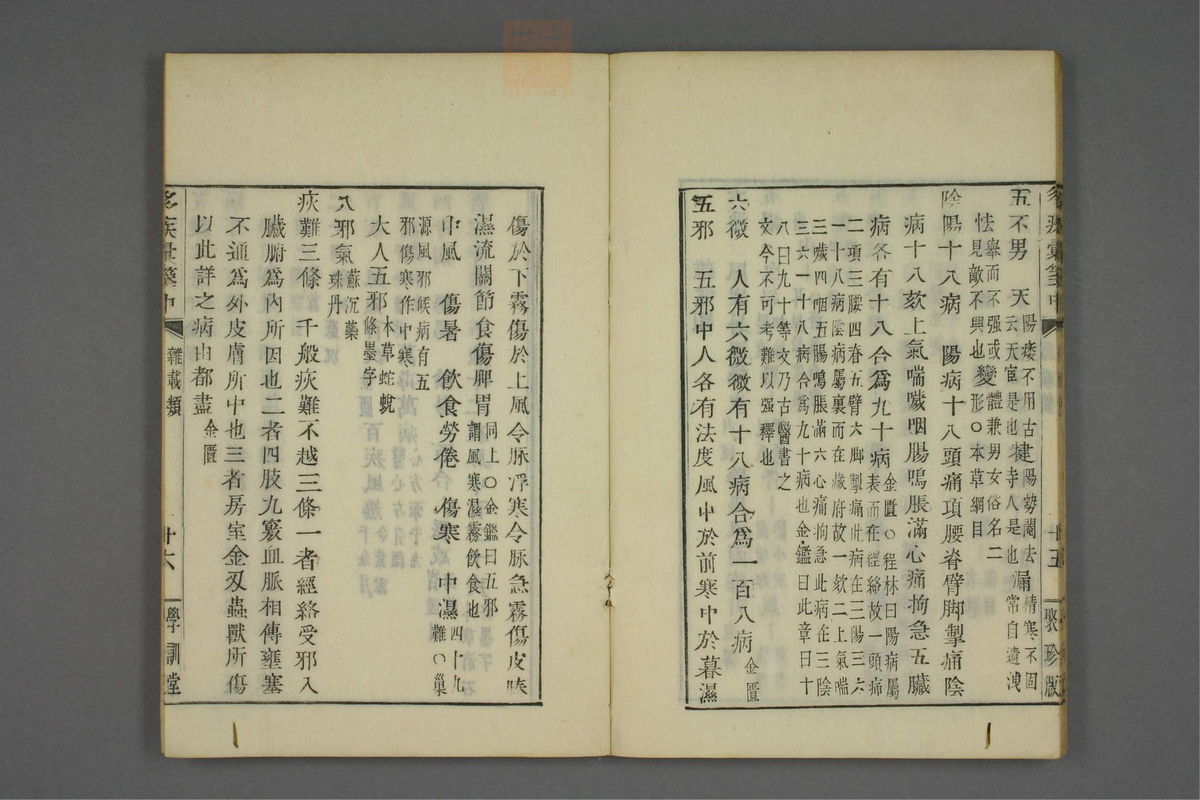 五不男　天陽痿不用古云天宦是也　犍陽勢闍去寺人是也　漏精寒不固常自遺洩
怯舉而不强或見敵不興也　變體兼男女俗名二形○本草綱目
陰陽十八病　陽病十八頭痛項腰脊臂脚掣痛陰
病十八欬上氣喘噦咽腸鳴脹滿心痛拘急五臟
病各有十八合爲九十病金匱○程林曰陽病屬表而在經絡故一頭痛
二項三腰四脊五臂六脚掣痛此病在三陽三六一十八病陰病屬裏而在臟府故一欬二上氣喘
三噦四咽五腸鳴脹滿六心痛拘急此病在三陰三六一十八病合爲九十病也金鑑曰此章曰十
八曰九十等文乃古醫書之文今不可考難以强釋也
六微　人有六微微有十八病合爲一百八病金匱
五邪　五邪中人各有法度風中於前寒中於暮濕
多疾彙箋中　十五　聚珍版
傷於下霧傷於上風令脉浮寒令脉急霧傷皮腠
濕流關節食傷脾胃同上○金鑑曰五邪謂風寒濕霧飲食也
中風　傷暑　飲食勞倦　傷寒　中濕四十九難○巢
源風邪候病有五邪傷寒作中寒
大人五邪本草蛇蛻條墨字
八邪氣蘇沉藥珠丹
疢難三條　千般疢難不越三條一者經絡受邪入
臟腑爲內所因也二者四肢九竅血脈相傳壅塞
不通爲外皮膚所中也三者房室金刃蟲獸所傷
以此詳之病由都盡金匱
多疾彙箋中　雜載類　十六　學訓堂